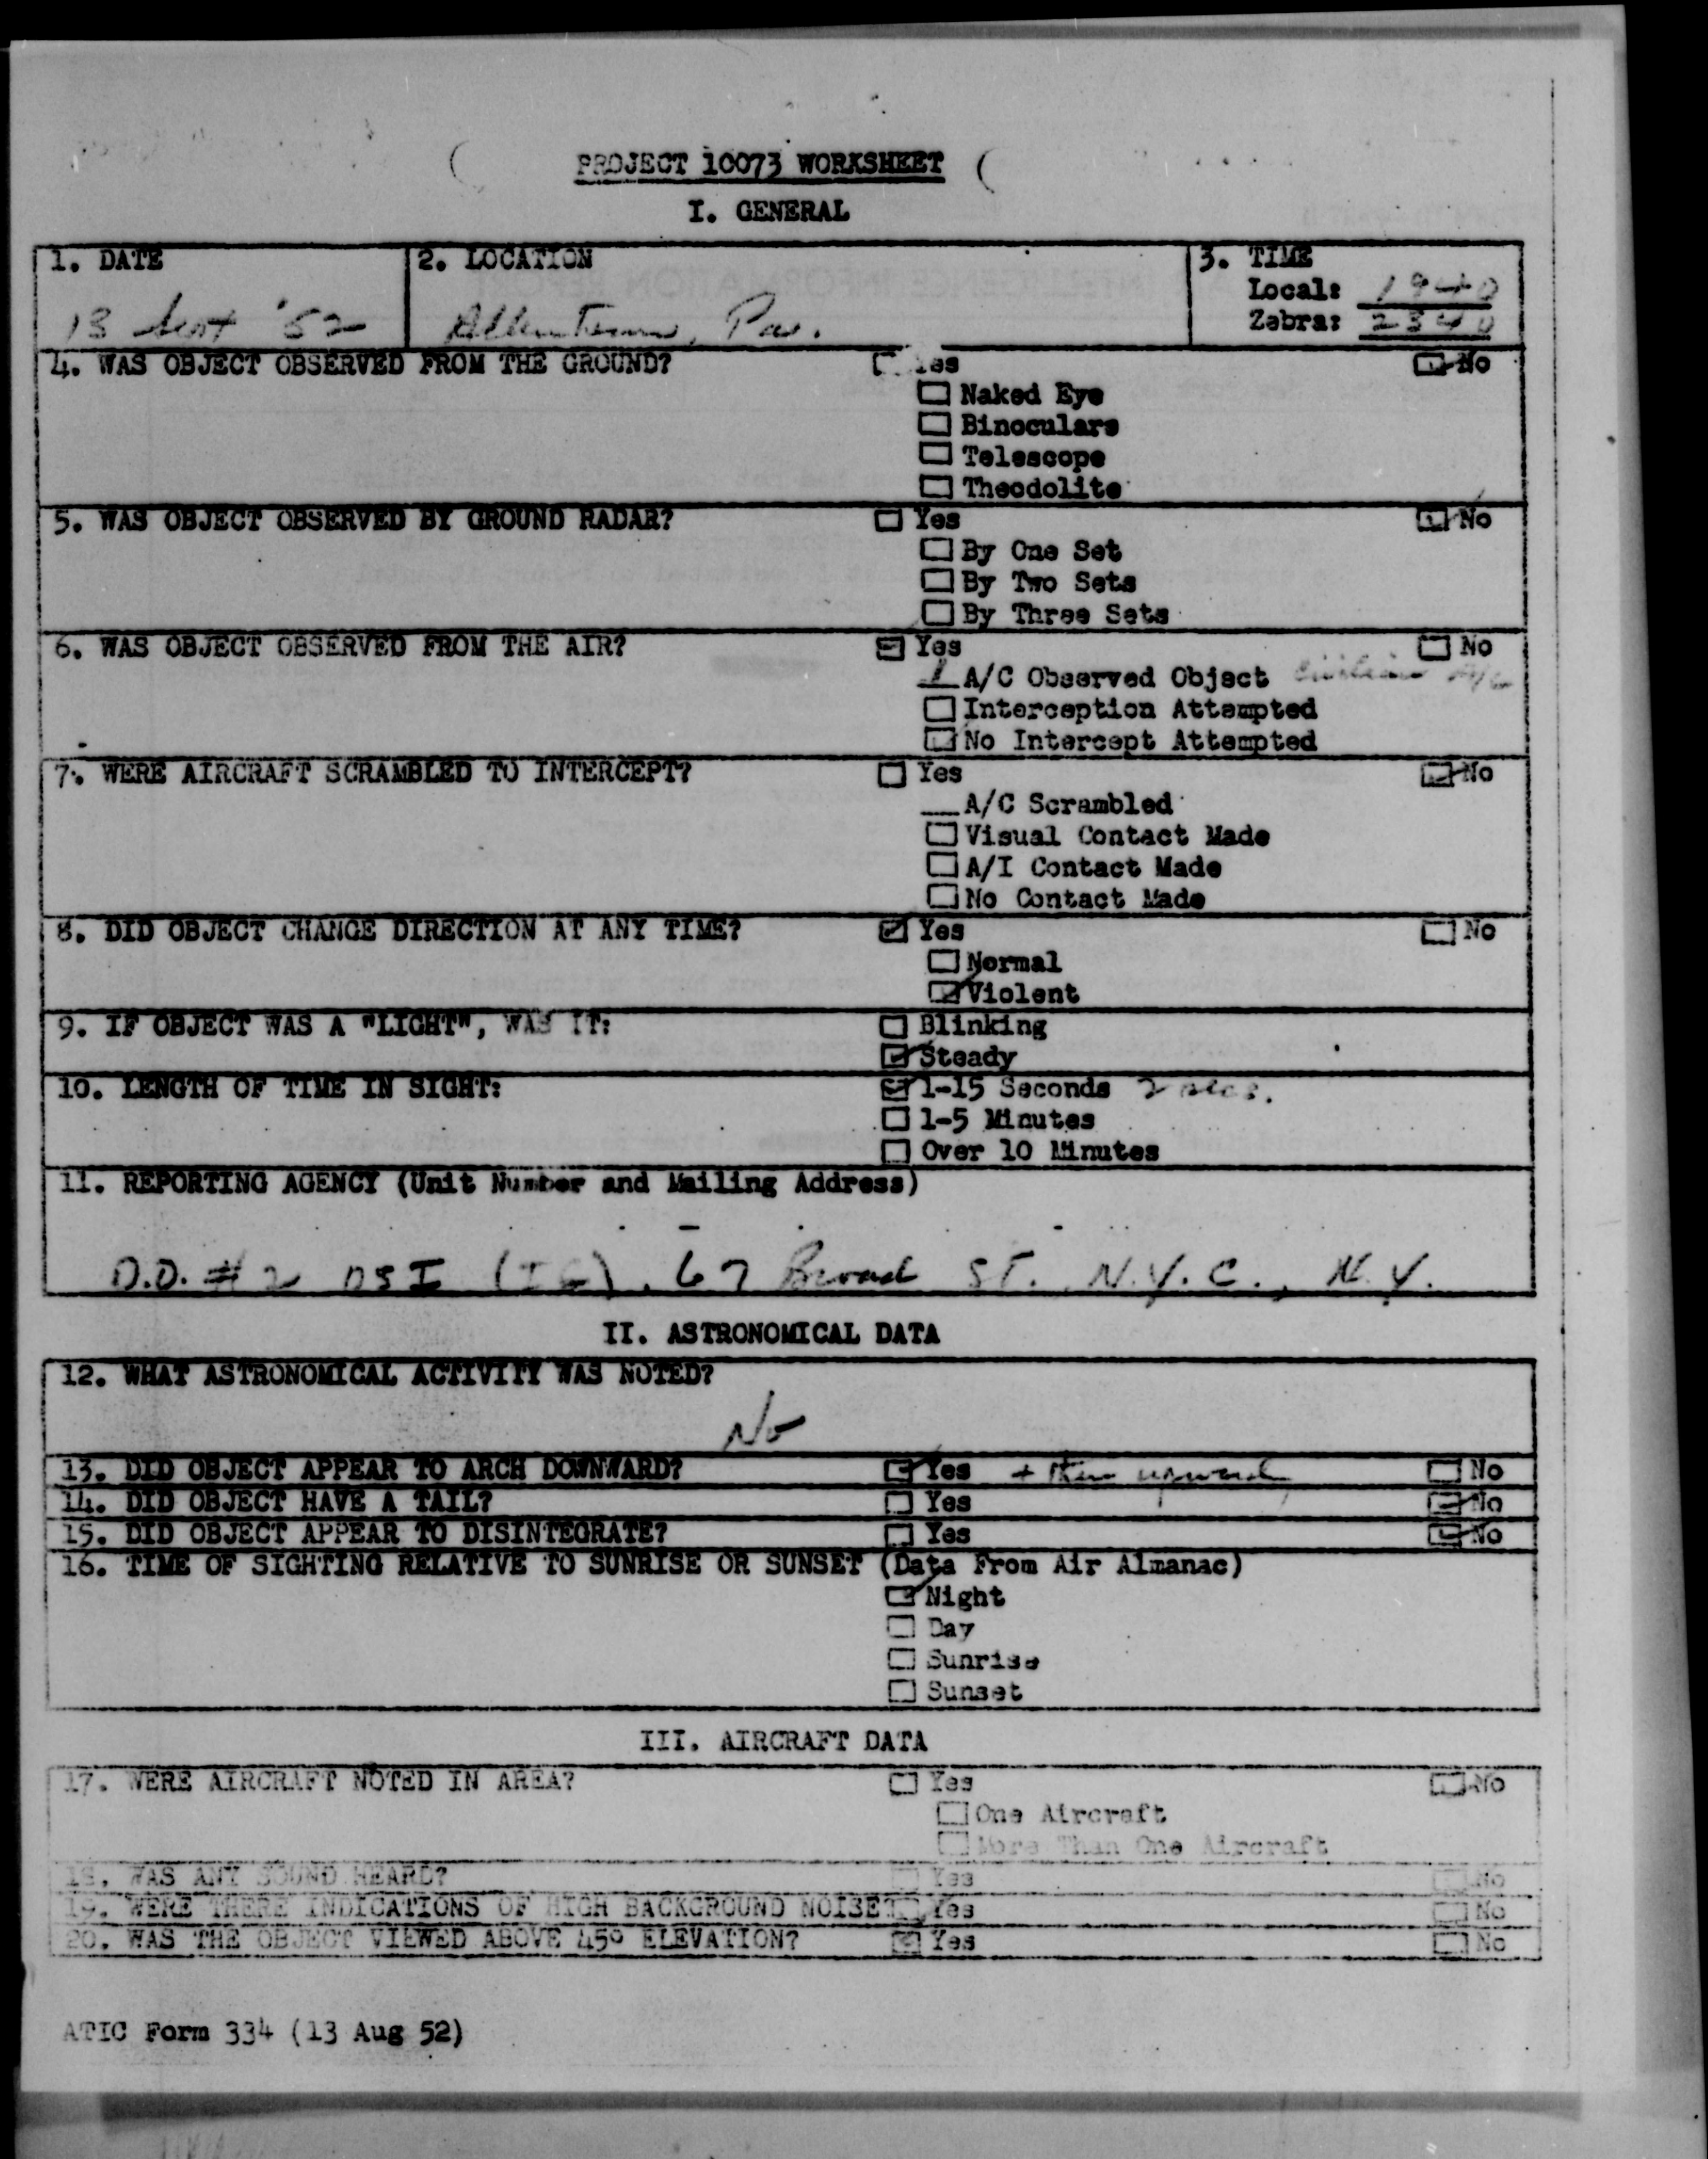 PROJECT 10073 WORKSHEET
I. GENERAL
1. DATE
13 Sept '52
2. LOCATION
Allentown, Pa.
3. TIME
Local: 1940
Zebra: 2340
4. WAS OBJECT OBSERVED FROM THE GROUND? Yes No
Naked Eye
Binoculars
Telescope
Theodolite
5. WAS OBJECT OBSERVED BY GROUND RADAR? Yes No
By One Set
By Two Sets
By Three Sets
6. WAS OBJECT OBSERVED FROM THE AIR? Yes No
1 A/C Observed Object Civilian A/C
Interception Attempted
No Intercept Attempted
7. WERE AIRCRAFT SCRAMBLED TO INTERCEPT? Yes No
A/C Scrambled
Visual Contact Made
A/I Contact Made
No Contact Made
8. DID OBJECT CHANGE DIRECTION AT ANY TIME? Yes No
Normal
Violent
9. IF OBJECT WAS A "LIGHT", WAS IT: Blinking
Steady
10. LENGTH OF TIME IN SIGHT: 1-15 Seconds 2 secs.
1-5 Minutes
Over 10 Minutes
11. REPORTING AGENCY (Unit Number and Mailing Address)
D.O. #2 OSI (IG), 67 Broad ST. N.Y.C., N.Y.
II. ASTRONOMICAL DATA
12. WHAT ASTRONOMICAL ACTIVITY WAS NOTED?
No
13. DID OBJECT APPEAR TO ARCH DOWNWARD? Yes + then upward No
14. DID OBJECT HAVE A TAIL? Yes No
15. DID OBJECT APPEAR TO DISINTEGRATE? Yes No
16. TIME OF SIGHTING RELATIVE TO SUNRISE OR SUNSET (Data From Air Almanac)
Night
Day
Sunrise
Sunset
III. AIRCRAFT DATA
17. WERE AIRCRAFT NOTED IN AREA? Yes No
One Aircraft
More Than One Aircraft
18. WAS ANY SOUND HEARD? Yes No
19. WERE THERE INDICATIONS OF HIGH BACKGROUND NOISE? Yes No
20. WAS THE OBJECT VIEWED ABOVE 45° ELEVATION? Yes No
ATIC Form 334 (13 Aug 52)